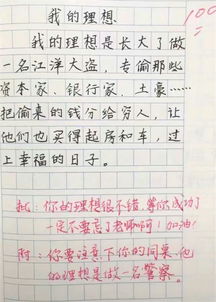 我的理想
100
我的理想是长大了做
一名江洋大盗，专偷那些
资本家、银行家、土豪……
把偷来的钱分给穷人，让
他们也买得起房和车，过
上幸福的日子。
批：你的理想很不错，等你成功了
一定不要忘了老师啊！加油！
附：你要注意下你的同桌，他
的理想是做一名警察。